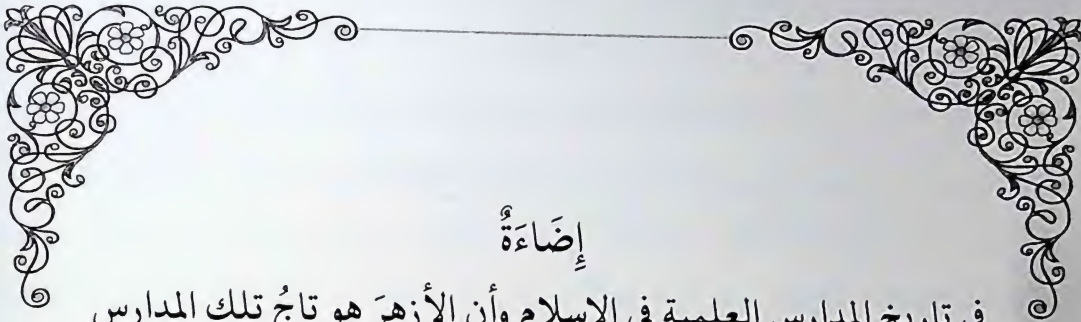 إِضَاءَةٌ
في تاريخ المدارس العلمية في الإسلام وأن الأزهرَ هو تاجُ تلك المدارس